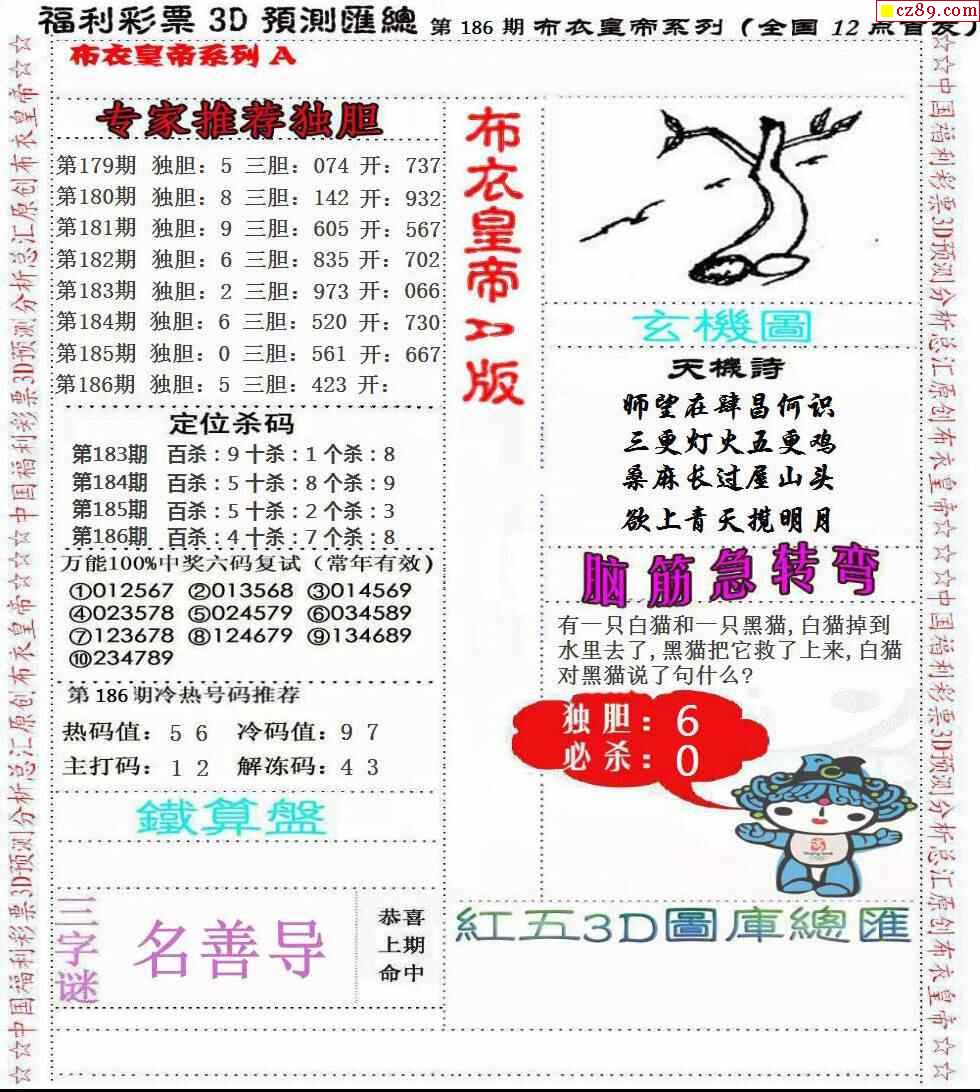 福利彩票 3D 預測匯總 第 186 期 布衣皇帝系列 (全國 12 点首发)
cz89.com
布衣皇帝系列 A
专家推荐独胆
第179期 独胆：5 三胆：074 开：737
第180期 独胆：8 三胆：142 开：932
第181期 独胆：9 三胆：605 开：567
第182期 独胆：6 三胆：835 开：702
第183期 独胆：2 三胆：973 开：066
第184期 独胆：6 三胆：520 开：730
第185期 独胆：0 三胆：561 开：667
第186期 独胆：5 三胆：423 开：
定位杀码
第183期 百杀：9 十杀：1 个杀：8
第184期 百杀：5 十杀：8 个杀：9
第185期 百杀：5 十杀：2 个杀：3
第186期 百杀：4 十杀：7 个杀：8
万能100%中奖六码复试（常年有效）
①012567 ②013568 ③014569
④023578 ⑤024579 ⑥034589
⑦123678 ⑧124679 ⑨134689
⑩234789
第 186 期冷热号码推荐
热码值：5 6 冷码值：9 7
主打码：1 2 解冻码：4 3
鐵算盤
三字谜
名善导
恭喜
上期
命中
布衣皇帝A版
玄機圖
天機詩
师望在肆昌何识
三更灯火五更鸡
桑麻长过屋山头
欲上青天揽明月
脑筋急转弯
有一只白猫和一只黑猫,白猫掉到
水里去了,黑猫把它救了上来,白猫
对黑猫说了句什么?
独胆：6
必杀：0
紅五3D圖庫總匯
☆☆中国福利彩票3D预测分析总汇原创布衣皇帝☆☆中国福利彩票3D预测分析总汇原创布衣皇帝☆
☆☆中国福利彩票3D预测分析总汇原创布衣皇帝☆☆中国福利彩票3D预测分析总汇原创布衣皇帝☆☆